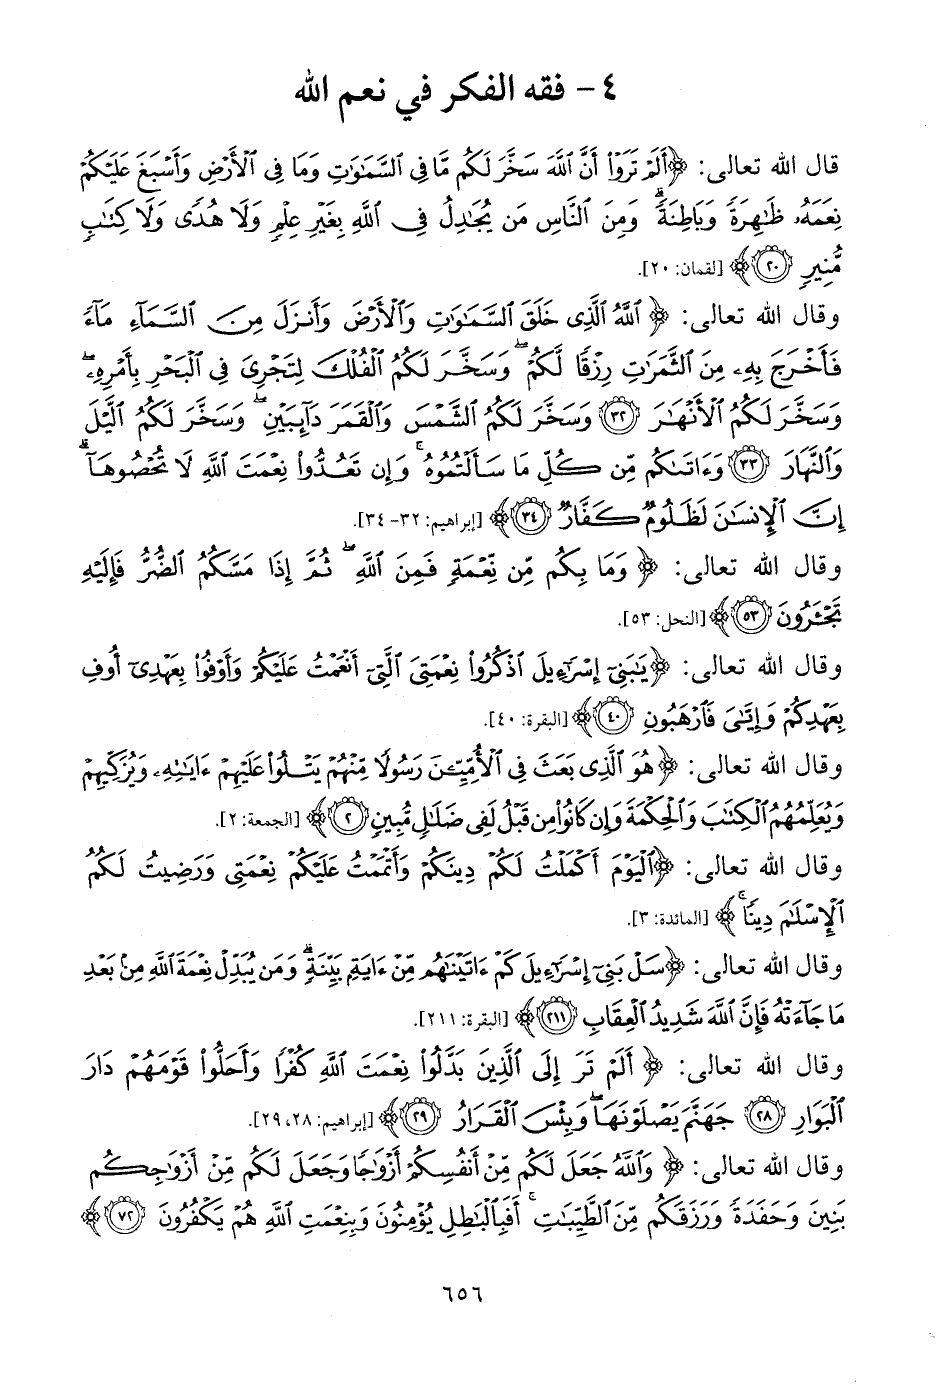 ٤- فقه الفكر في نعم الله
قال الله تعالى: ﴿أَلَمْ تَرَوْا۟ أَنَّ ٱللَّهَ سَخَّرَ لَكُم مَّا فِى ٱلسَّمَٰوَٰتِ وَمَا فِى ٱلْأَرْضِ وَأَسْبَغَ عَلَيْكُمْ
نِعَمَهُۥ ظَٰهِرَةً وَبَاطِنَةً ۗ وَمِنَ ٱلنَّاسِ مَن يُجَٰدِلُ فِى ٱللَّهِ بِغَيْرِ عِلْمٍ وَلَا هُدًى وَلَا كِتَٰبٍ
مُّنِيرٍ ٢٠﴾ [لقمان: ٢٠].
وقال الله تعالى: ﴿ٱللَّهُ ٱلَّذِى خَلَقَ ٱلسَّمَٰوَٰتِ وَٱلْأَرْضَ وَأَنزَلَ مِنَ ٱلسَّمَآءِ مَآءً
فَأَخْرَجَ بِهِۦ مِنَ ٱلثَّمَرَٰتِ رِزْقًا لَّكُمْ ۖ وَسَخَّرَ لَكُمُ ٱلْفُلْكَ لِتَجْرِىَ فِى ٱلْبَحْرِ بِأَمْرِهِۦ ۖ
وَسَخَّرَ لَكُمُ ٱلْأَنْهَٰرَ ٣٢ وَسَخَّرَ لَكُمُ ٱلشَّمْسَ وَٱلْقَمَرَ دَآئِبَيْنِ ۖ وَسَخَّرَ لَكُمُ ٱلَّيْلَ
وَٱلنَّهَارَ ٣٣ وَءَاتَىٰكُم مِّن كُلِّ مَا سَأَلْتُمُوهُ ۚ وَإِن تَعُدُّوا۟ نِعْمَتَ ٱللَّهِ لَا تُحْصُوهَآ ۗ
إِنَّ ٱلْإِنسَٰنَ لَظَلُومٌ كَفَّارٌ ٣٤﴾ [إبراهيم: ٣٢- ٣٤].
وقال الله تعالى: ﴿وَمَا بِكُم مِّن نِّعْمَةٍ فَمِنَ ٱللَّهِ ۖ ثُمَّ إِذَا مَسَّكُمُ ٱلضُّرُّ فَإِلَيْهِ
تَجْـَٔرُونَ ٥٣﴾ [النحل: ٥٣].
وقال الله تعالى: ﴿يَٰبَنِىٓ إِسْرَٰٓءِيلَ ٱذْكُرُوا۟ نِعْمَتِىَ ٱلَّتِىٓ أَنْعَمْتُ عَلَيْكُمْ وَأَوْفُوا۟ بِعَهْدِىٓ أُوفِ
بِعَهْدِكُمْ وَإِيَّٰىَ فَٱرْهَبُونِ ٤٠﴾ [البقرة: ٤٠].
وقال الله تعالى: ﴿هُوَ ٱلَّذِى بَعَثَ فِى ٱلْأُمِّيِّـۧنَ رَسُولًا مِّنْهُمْ يَتْلُوا۟ عَلَيْهِمْ ءَايَٰتِهِۦ وَيُزَكِّيهِمْ
وَيُعَلِّمُهُمُ ٱلْكِتَٰبَ وَٱلْحِكْمَةَ وَإِن كَانُوا۟ مِن قَبْلُ لَفِى ضَلَٰلٍ مُّبِينٍ ٢﴾ [الجمعة: ٢].
وقال الله تعالى: ﴿ٱلْيَوْمَ أَكْمَلْتُ لَكُمْ دِينَكُمْ وَأَتْمَمْتُ عَلَيْكُمْ نِعْمَتِى وَرَضِيتُ لَكُمُ
ٱلْإِسْلَٰمَ دِينًا ۚ﴾ [المائدة: ٣].
وقال الله تعالى: ﴿سَلْ بَنِىٓ إِسْرَٰٓءِيلَ كَمْ ءَاتَيْنَٰهُم مِّنْ ءَايَةٍۭ بَيِّنَةٍ ۗ وَمَن يُبَدِّلْ نِعْمَةَ ٱللَّهِ مِنۢ بَعْدِ
مَا جَآءَتْهُ فَإِنَّ ٱللَّهَ شَدِيدُ ٱلْعِقَابِ ٢١١﴾ [البقرة: ٢١١].
وقال الله تعالى: ﴿أَلَمْ تَرَ إِلَى ٱلَّذِينَ بَدَّلُوا۟ نِعْمَتَ ٱللَّهِ كُفْرًا وَأَحَلُّوا۟ قَوْمَهُمْ دَارَ
ٱلْبَوَارِ ٢٨ جَهَنَّمَ يَصْلَوْنَهَا ۖ وَبِئْسَ ٱلْقَرَارُ ٢٩﴾ [إبراهيم: ٢٨، ٢٩].
وقال الله تعالى: ﴿وَٱللَّهُ جَعَلَ لَكُم مِّنْ أَنفُسِكُمْ أَزْوَٰجًا وَجَعَلَ لَكُم مِّنْ أَزْوَٰجِكُم
بَنِينَ وَحَفَدَةً وَرَزَقَكُم مِّنَ ٱلطَّيِّبَٰتِ ۚ أَفَبِٱلْبَٰطِلِ يُؤْمِنُونَ وَبِنِعْمَتِ ٱللَّهِ هُمْ يَكْفُرُونَ ٧٢﴾
٦٥٦